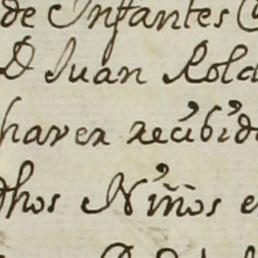 de Infantes
D Juan Rold
haver recibido
dhos Niños e